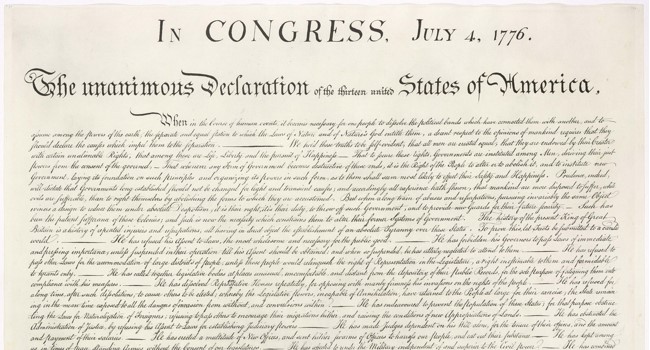 In CONGRESS, July 4, 1776.
The unanimous Declaration of the thirteen united States of America,
When in the Course of human events, it becomes necessary for one people to dissolve the political bands which have connected them with another, and to
assume among the powers of the earth, the separate and equal station to which the Laws of Nature and of Nature's God entitle them, a decent respect to the opinions of mankind requires that they
should declare the causes which impel them to the separation. — We hold these truths to be self-evident, that all men are created equal, that they are endowed by their Creator
with certain unalienable Rights, that among these are Life, Liberty and the pursuit of Happiness. — That to secure these rights, Governments are instituted among Men, deriving their just
powers from the consent of the governed, — That whenever any Form of Government becomes destructive of these ends, it is the Right of the People to alter or to abolish it, and to institute new
Government, laying its foundation on such principles and organizing its powers in such form, as to them shall seem most likely to effect their Safety and Happiness. Prudence, indeed,
will dictate that Governments long established should not be changed for light and transient causes; and accordingly all experience hath shewn, that mankind are more disposed to suffer, while
evils are sufferable, than to right themselves by abolishing the forms to which they are accustomed. But when a long train of abuses and usurpations, pursuing invariably the same Object
evinces a design to reduce them under absolute Despotism, it is their right, it is their duty, to throw off such Government, and to provide new Guards for their future security. — Such has
been the patient sufferance of these Colonies; and such is now the necessity which constrains them to alter their former Systems of Government. The history of the present King of Great
Britain is a history of repeated injuries and usurpations, all having in direct object the establishment of an absolute Tyranny over these States. To prove this, let Facts be submitted to a candid
world. — He has refused his Assent to Laws, the most wholesome and necessary for the public good. — He has forbidden his Governors to pass Laws of immediate
and pressing importance, unless suspended in their operation till his Assent should be obtained; and when so suspended, he has utterly neglected to attend to them. — He has refused to
pass other Laws for the accommodation of large districts of people, unless those people would relinquish the right of Representation in the Legislature, a right inestimable to them and formidable
to tyrants only. — He has called together legislative bodies at places unusual, uncomfortable, and distant from the depository of their Public Records, for the sole purpose of fatiguing them into
compliance with his measures. — He has dissolved Representative Houses repeatedly, for opposing with manly firmness his invasions on the rights of the people. — He has refused for
a long time, after such dissolutions, to cause others to be elected; whereby the Legislative powers, incapable of Annihilation, have returned to the People at large for their exercise; the State remain-
ing in the mean time exposed to all the dangers of invasion from without, and convulsions within. — He has endeavoured to prevent the population of these States; for that purpose obstruc-
ting the Laws for Naturalization of Foreigners; refusing to pass others to encourage their migrations hither, and raising the conditions of new Appropriations of Lands. — He has obstructed the
Administration of Justice, by refusing his Assent to Laws for establishing Judiciary powers. — He has made Judges dependent on his Will alone, for the tenure of their offices, and the amount
and payment of their salaries. — He has erected a multitude of New Offices, and sent hither swarms of Officers to harrass our people, and eat out their substance. — He has kept among